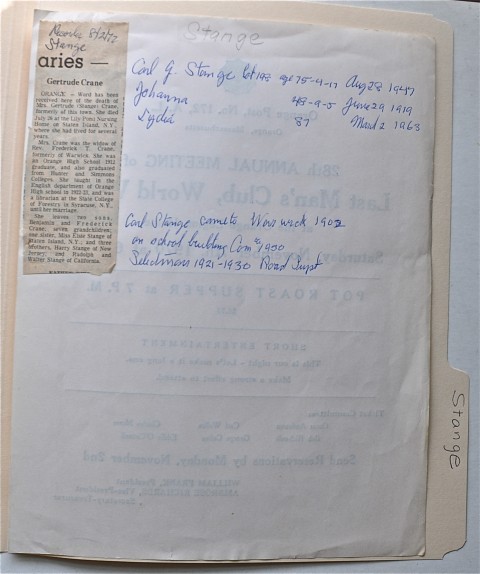 Stange
8/2/72
Stange
aries —
Gertrude Crane
ORANGE — Word has been
received here of the death of
Mrs. Gertrude (Stange) Crane,
formerly of this town. She died
July 26 at the Lily Pond Nursing
Home on Staten Island, N.Y.,
where she had lived for several
years.
Mrs. Crane was the widow of
Rev. Frederick T. Crane,
formerly of Warwick. She was
an Orange High School 1912
graduate, and also graduated
from Hunter and Simmons
Colleges. She taught in the
English department of Orange
High school in 1922-23, and was
a librarian at the State College
of Forestry in Syracuse, N.Y.,
until her marriage.
She leaves two sons,
Benjamin and Frederick
Crane; seven grandchildren;
one sister, Miss Elsie Stange of
Staten Island, N.Y.; and three
brothers, Harry Stange of New
Jersey; and Rudolph and
Walter Stange of California.
Carl G. Stange Lot 198 age 75-4-17 Aug 28 1947
Johanna 48-9-5 June 29 1919
Lydia 87 March 2 1963
Carl Stange came to Warwick 1902
on school building Com 1930
Selectmen 1921-1930 Road Supt
Stange
28th ANNUAL MEETING of
Last Man's Club, World W
POT ROAST SUPPER at 7 P.M.
SHORT ENTERTAINMENT
Send Reservations by Monday, November 2nd